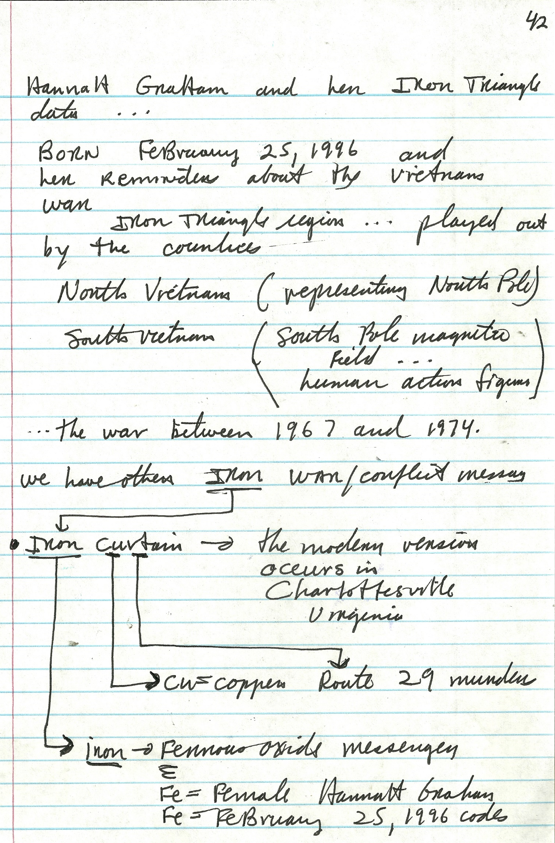 42
Hannah Graham and her Iron Triangle
data ...
Born February 25, 1996 and
her reminder about the Vietnam
war
Iron Triangle region ... played out
by the countries
North Vietnam (representing North Pole)
South Vietnam (South Pole magnetic
Field ...
human action figures)
... the war between 1967 and 1974.
we have others Iron war/conflict messag
• Iron Curtain → the modern version
occurs in
Charlottesville
Virginia
→ Cu = copper Route 29 murder
→ iron → Ferrous oxide messenger
Fe = Female Hannah Graham
Fe = February 25, 1996 codes